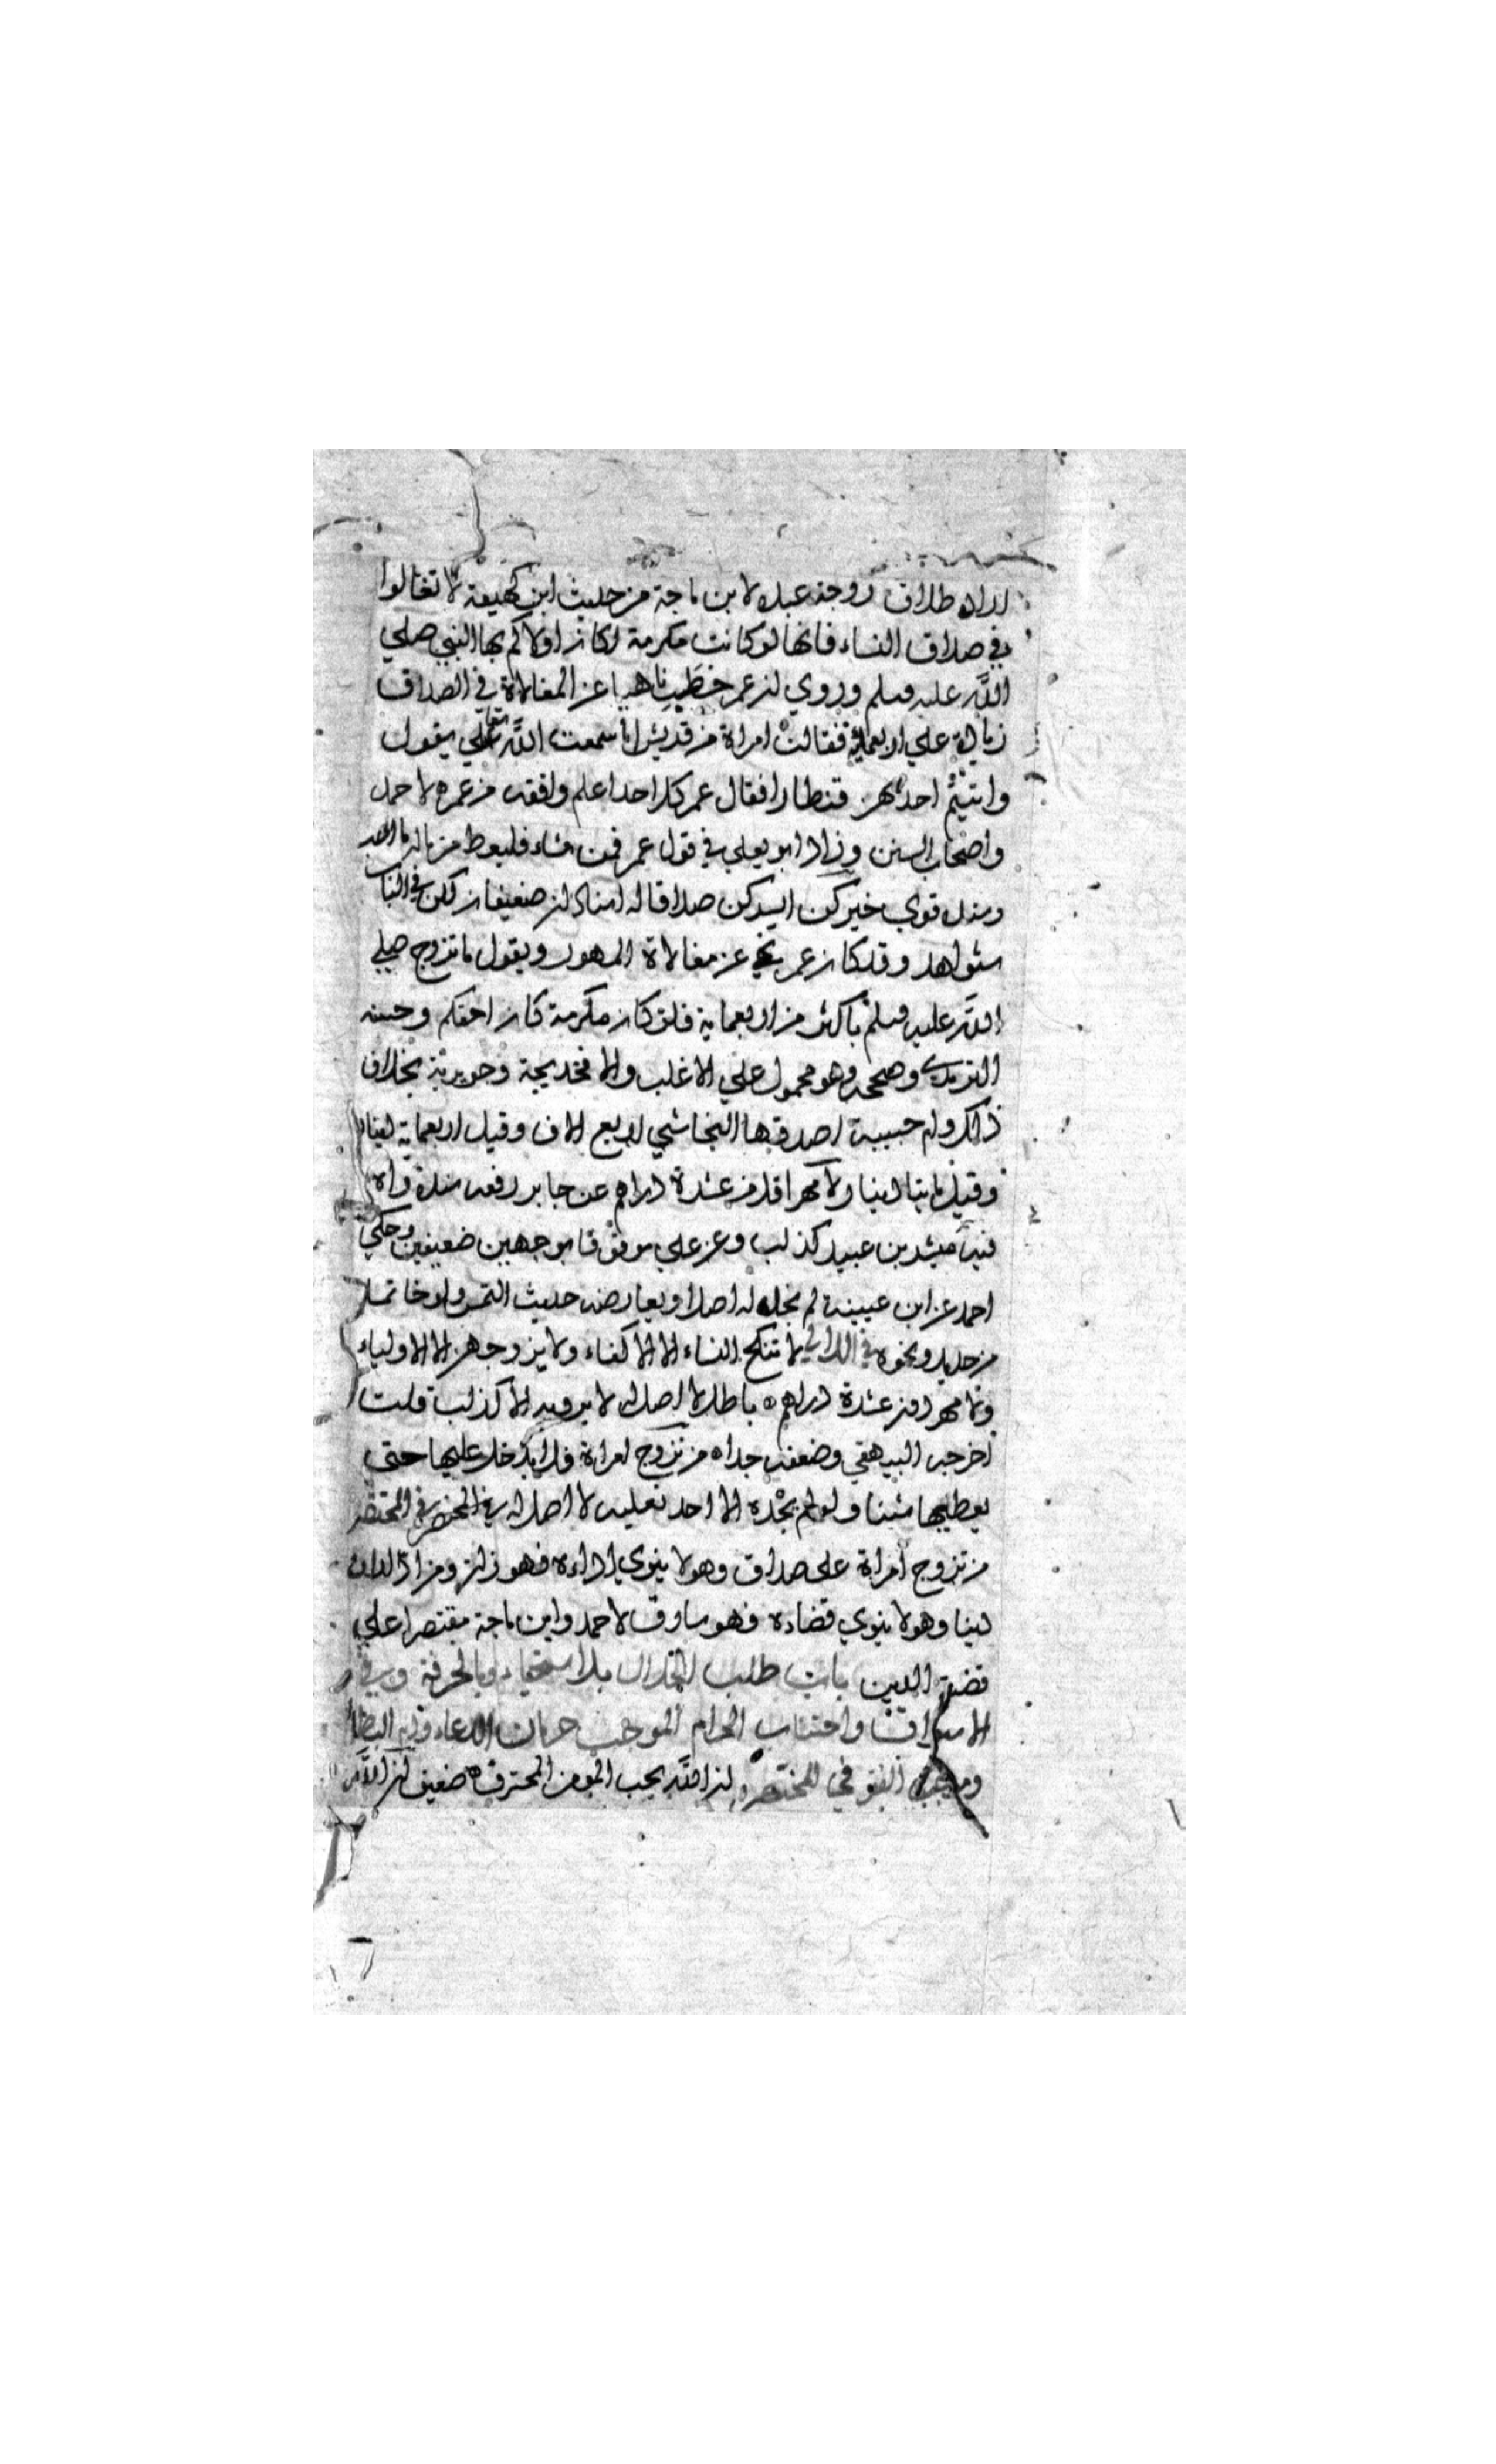 اراد طلاق زوجة عبده لابن ماجة من حديث ابن لهيعة لا تغالوا
في صداق النساء فانها لو كانت مكرمة لكان اولاكم بها النبي صلي
الله عليه وسلم وروي ان عمر خطب ناهيا عن المغالاة في الصداق
زيادة علي اربعماية فقالت امراة من قريش اما سمعت الله تعالي يقول
واتيتم احدهن قنطارا فقال عمر كل احد اعلم وافقه من عمر ه لاحمد
واصحاب السنن وزاد ابو يعلي في قول عمر فمن شاء فليعط من ماله ما احب
وسنده قوي خيركن ايسركن صداقا له اسنادان ضعيفان لكن في الباب
شواهد وقد كان عمر ينهي عن مغالاة المهور ويقول ما تزوج صلي
الله عليه وسلم باكثر من اربعماية فلو كان مكرمة كان احقكم وحسنه
الترمذي وصححه وهو محمول علي الاغلب والا فخديجة وجويرية بخلاف
ذلك وام حبيبة اصدقها النجاشي اربع الاف وقيل اربعماية دينار
وقيل مايتا دينار ولا مهر اقل من عشرة دراهم عن جابر رفعه سنده واه
فيه مبشر بن عبيد كذاب وعن علي موقوفا بوجهين ضعيفين وحكي
احمد عن ابن عيينة لم نجد له اصلا ويعارضه حديث التمس ولو خاتما
من حديد ونحوه في اللالي لا تنكح النساء الا الاكفاء ولا يزوجهن الا الاولياء
ولا مهر دون عشرة دراهم ه باطل لا اصل له لا يرويه الا كذاب قلت
اخرجه البيهقي وضعفه جدا ه من تزوج امراة فلا يدخل عليها حتى
يعطيها شيئا ولو لم يجد الا احد نعليه لا اصل له في المختصر
من تزوج امراة على صداق وهو لا ينوي اداءه فهو زان ومن ادان
دينا وهو لا ينوي قضاءه فهو سارق لاحمد وابن ماجة مقتصرا علي
قضية الدين باب طلب الحلال بلا استحياء وبالحرفة
واجتناب الحرام الموجب حرمان الدعاء
في المختصر ان الله يحب المومن المحترف ضعيف ان الله